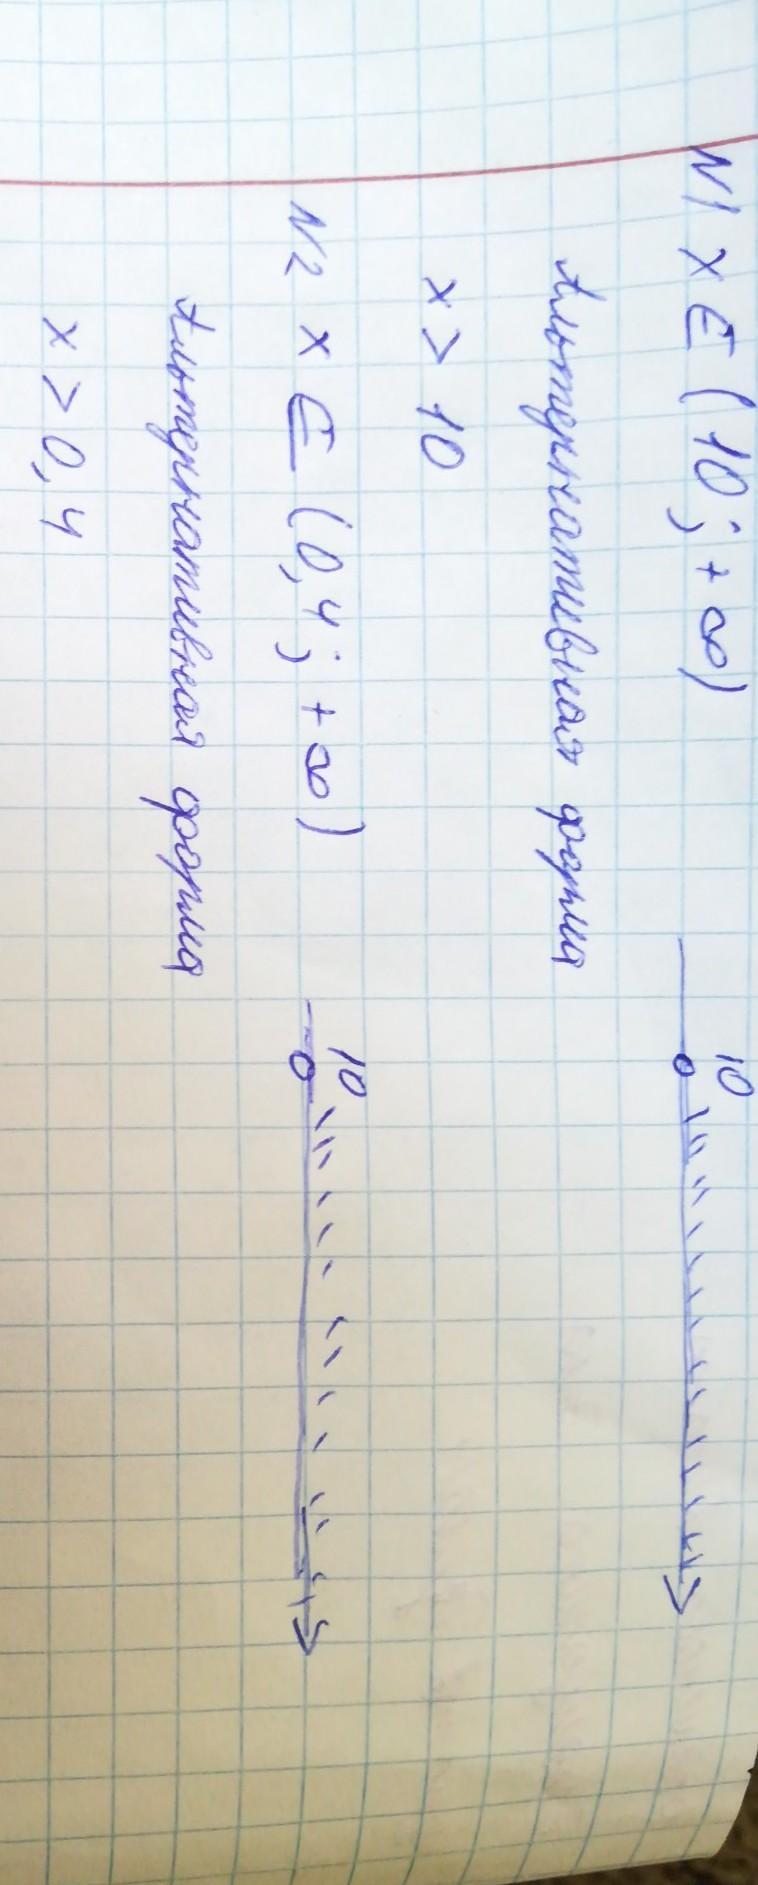 N1 x ∈ (10; +∞)
10
Альтернативная форма
x > 10
N2 x ∈ (0,4; +∞)
10
Альтернативная форма
x > 0,4